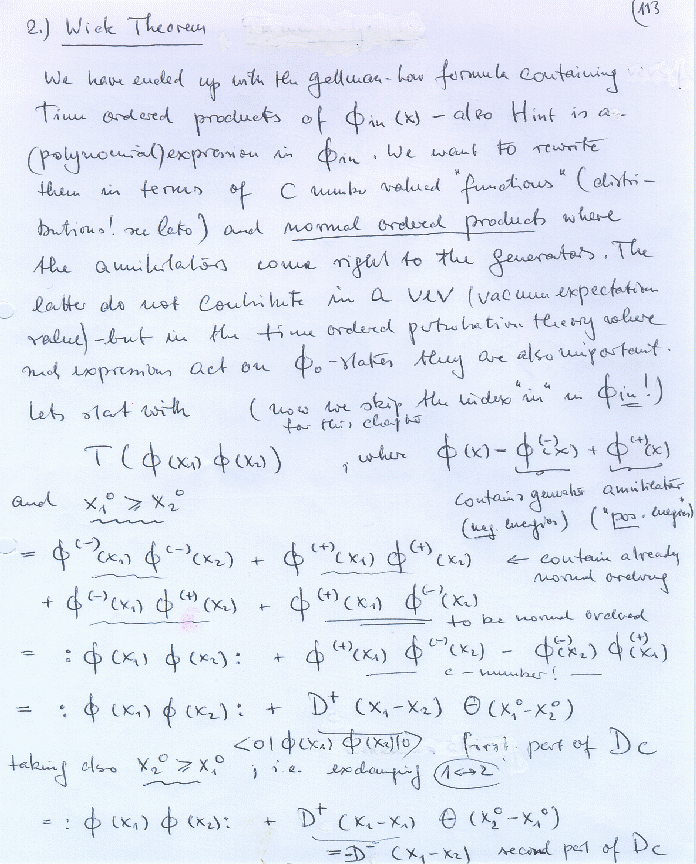 (113
2.) Wick Theorem
We have ended up with the Gellman-Low formula containing
Time ordered products of ϕin (x) – also Hint is a
(polynomial) expression in ϕin. We want to rewrite
them in terms of C number valued "functions" (distri-
butions! see later) and normal ordered products where
the annihilators come right to the generators. The
latter do not contribute in a VEV (vacuum expectation
value) – but in the time ordered perturbation theory where
such expressions act on ϕ0-states they are also important.
Lets start with (now we skip the index "in" in ϕin!)
for this chapter
T(ϕ(x1) ϕ(x2)) , where ϕ(x) = ϕ(-)(x) + ϕ(+)(x)
and x1° ⩾ x2° contains generator annihilator
(neg. energies) ("pos. energies")
= ϕ(-)(x1) ϕ(-)(x2) + ϕ(+)(x1) ϕ(+)(x2) ← contain already
normal ordering
+ ϕ(-)(x1) ϕ(+)(x2) + ϕ(+)(x1) ϕ(-)(x2)
to be normal ordered
= :ϕ(x1) ϕ(x2): + ϕ(+)(x1) ϕ(-)(x2) – ϕ(-)(x2) ϕ(+)(x1)
c-number!
= :ϕ(x1) ϕ(x2): + D+ (x1-x2) Θ(x1°-x2°)
<0| ϕ(x1) ϕ(x2)|0> first part of Dc
taking also x2° ⩾ x1° ; i.e. exchanging 1↔2
= :ϕ(x1) ϕ(x2): + D+ (x2-x1) Θ(x2°-x1°)
= -D- (x1-x2) second part of Dc